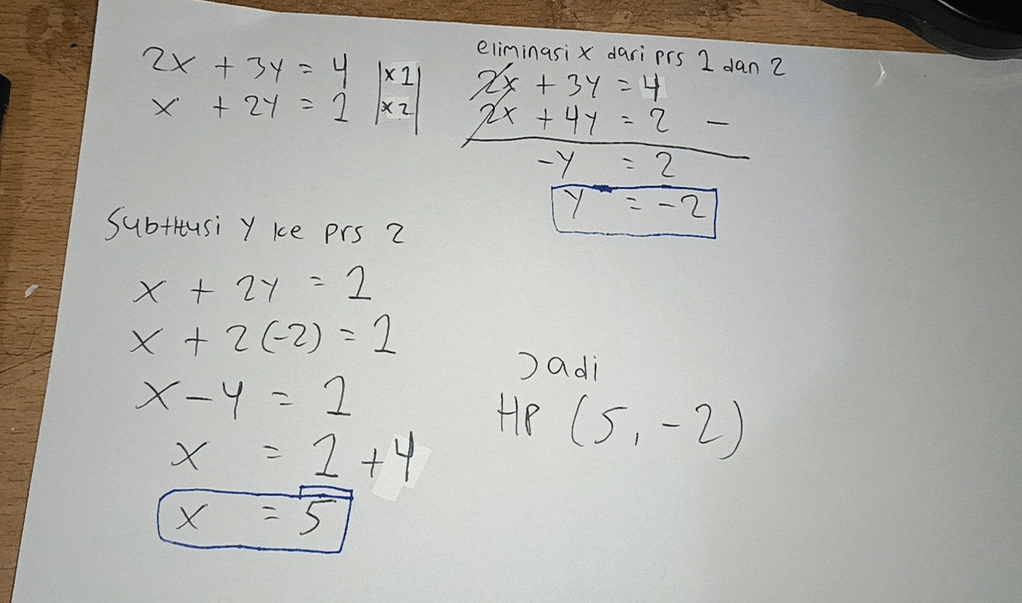 2x + 3y = 4 |x 1|
x + 2y = 1 |x 2|
eliminasi x dari prs 1 dan 2
2x + 3y = 4
2x + 4y = 2 -
-y = 2
y = -2
Subtitusi y ke prs 2
x + 2y = 1
x + 2(-2) = 1
x - 4 = 1
x = 1 + 4
x = 5
Jadi
HP (5, -2)